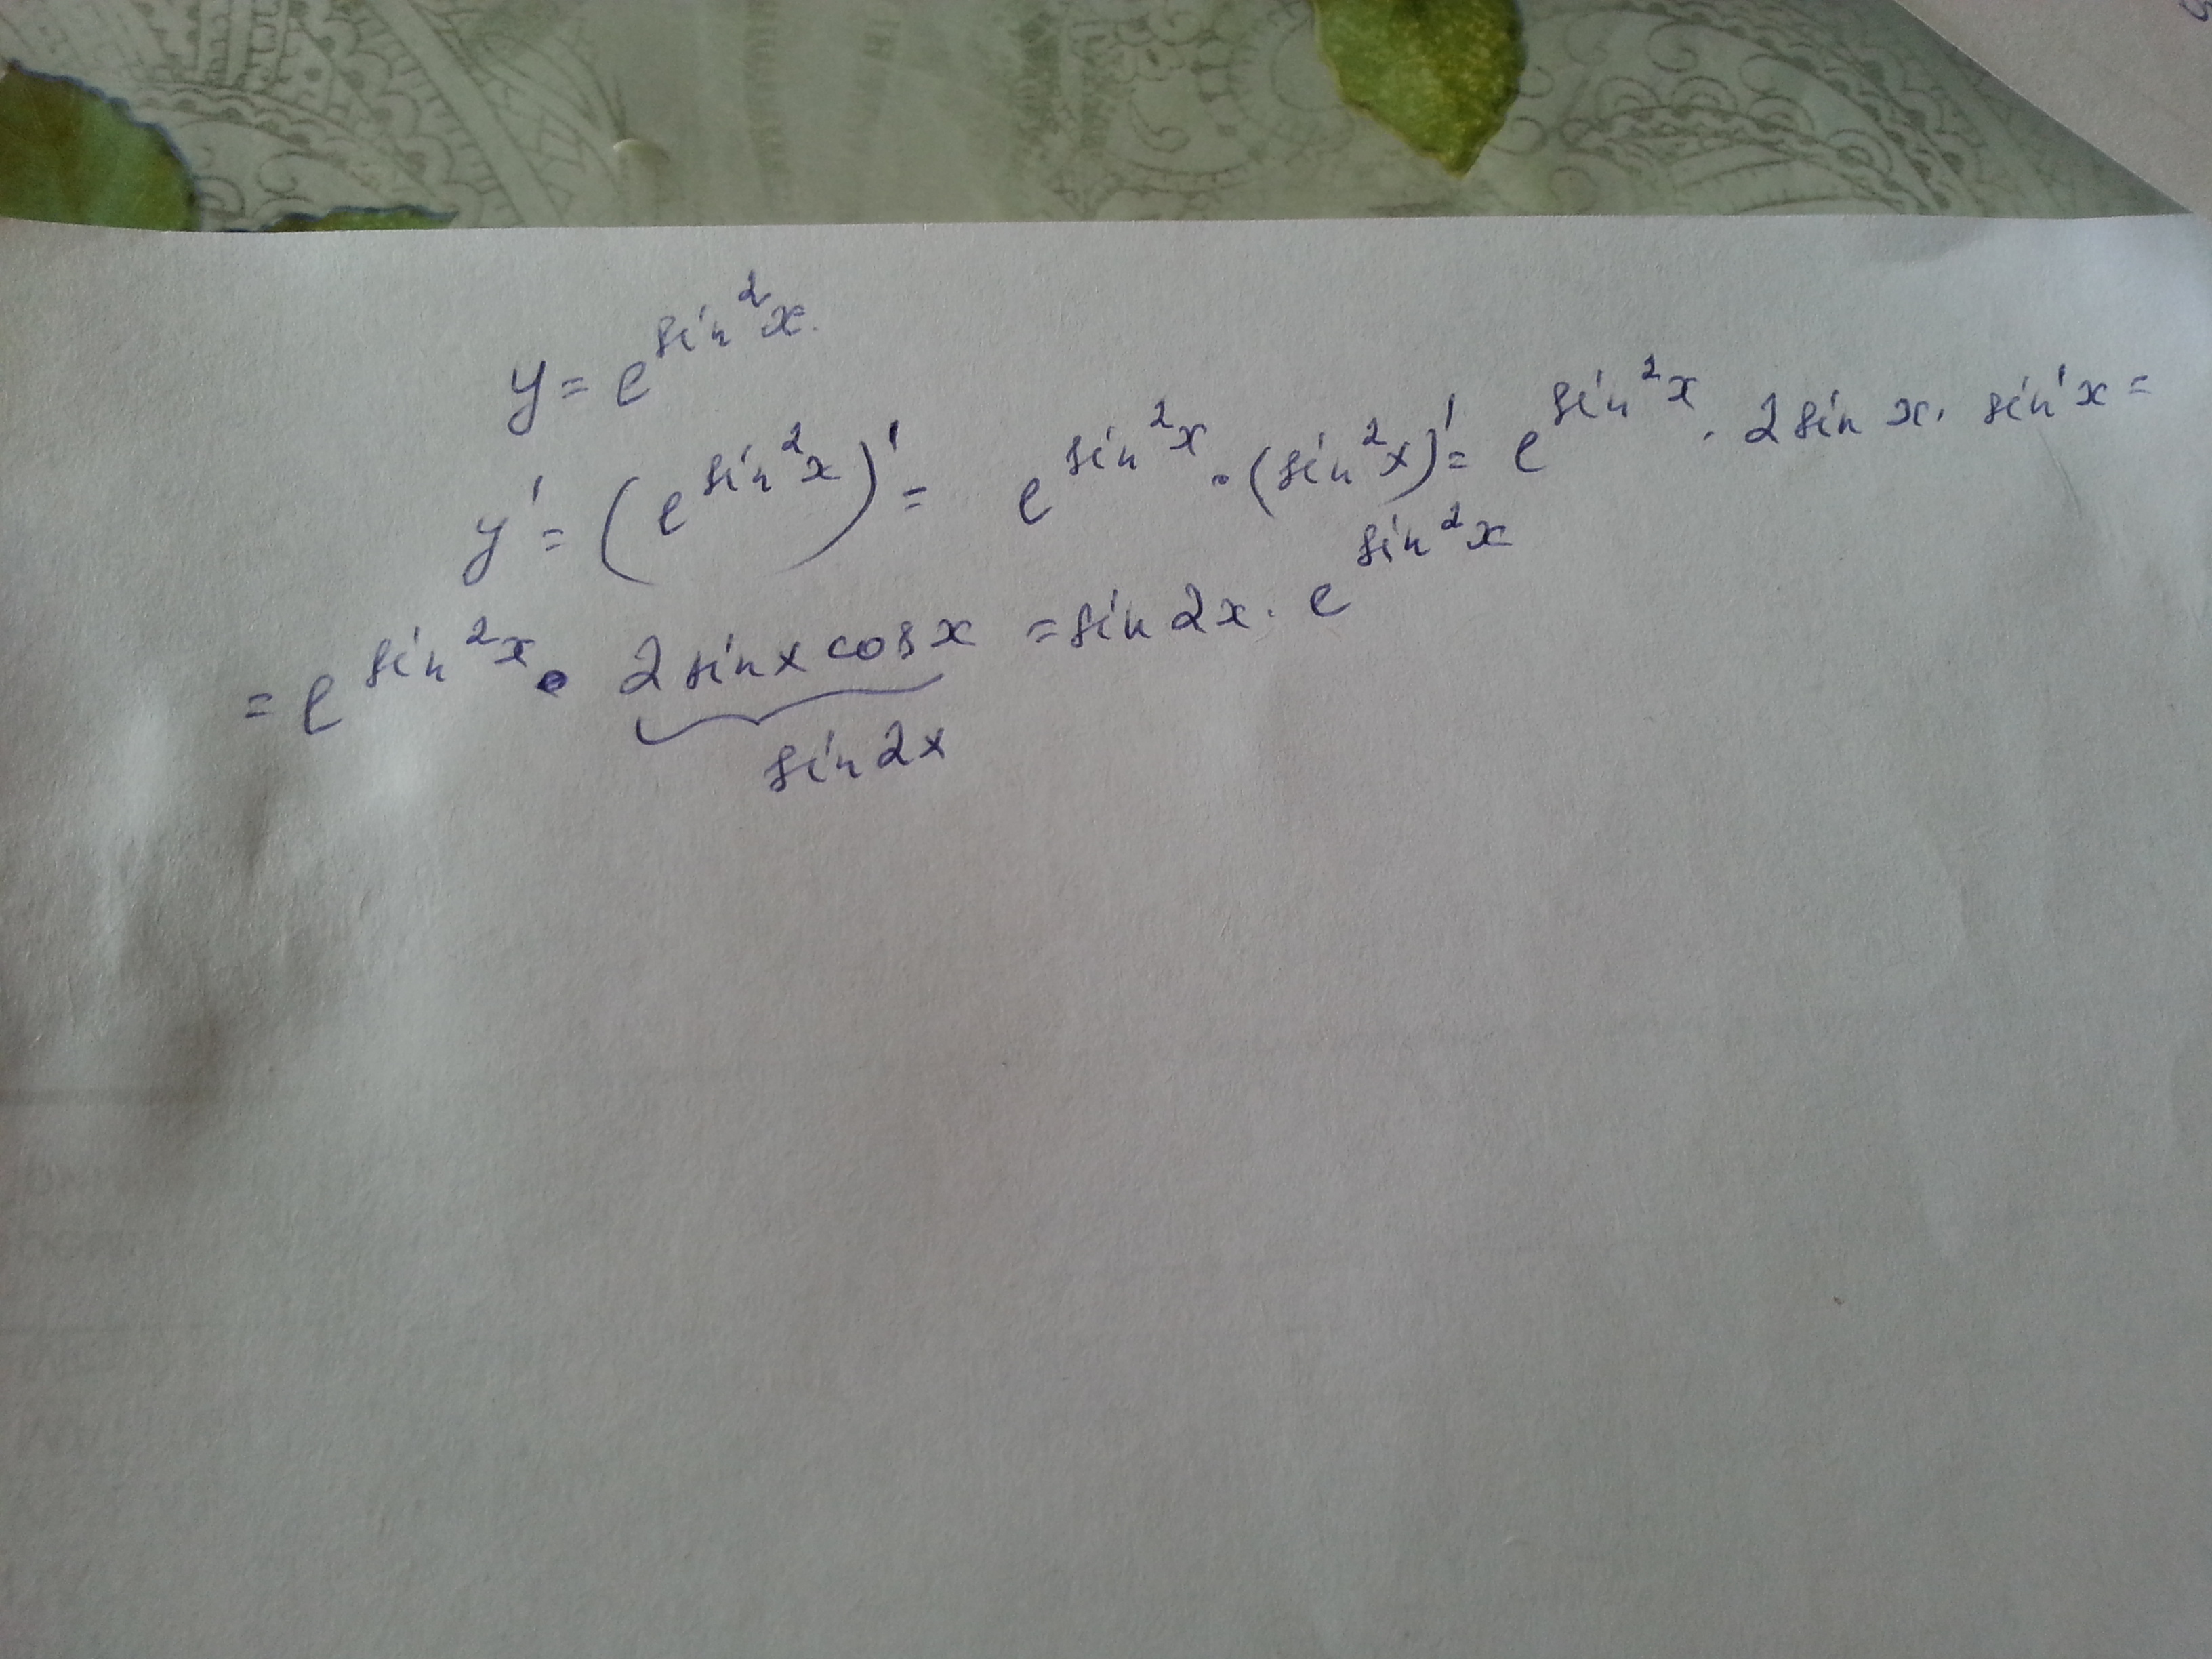 y = e^{sin^2 x}.
y' = (e^{sin^2 x})' = e^{sin^2 x} · (sin^2 x)' = e^{sin^2 x} · 2 sin x · sin' x =
= e^{sin^2 x} · 2 sin x cos x = sin 2x · e^{sin^2 x}
sin 2x